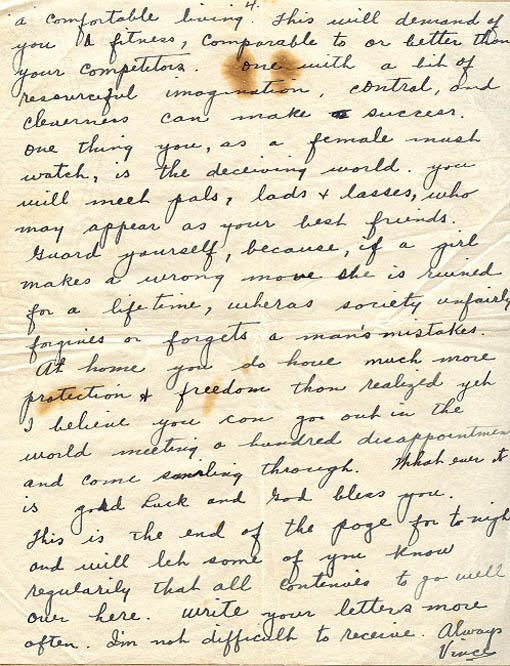 4.
a comfortable living. This will demand of
you a fitness, comparable to or better than
your competitors. One with a bit of
resourceful imagination, control, and
cleverness can make a success.
One thing you, as a female must
watch, is the deceiving world. you
will meet pals, lads & lasses, who
may appear as your best friends.
Guard yourself, because, if a girl
makes a wrong move she is ruined
for a life time, wheras society unfairly
forgives or forgets a man's mistakes.
At home you do have much more
protection & freedom than realized yet
I believe you can go out in the
world meeting a hundred disappointmen
and come smiling through. What ever it
is good Luck and God bless you.
This is the end of the page for tonigh
and will let some of you know
regularily that all contenues to go well
over here. Write your letters more
often. I'm not difficult to receive. Always
Vince